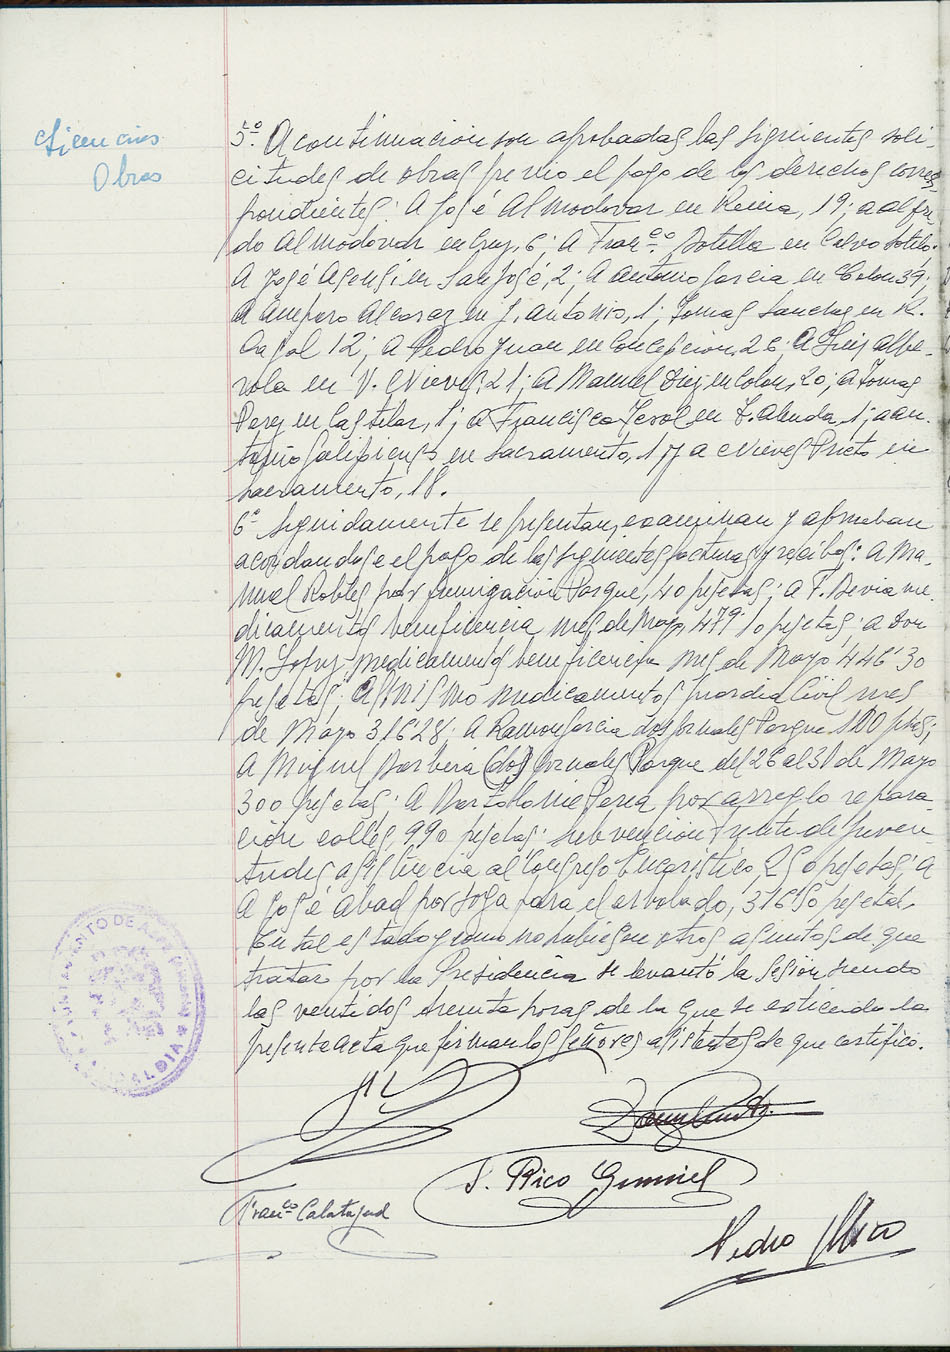 Licencias
Obras
5º A continuacion son aprobadas las siguientes soli-
citudes de obras previo el pago de los derechos corres-
pondientes: A José Almodovar en Reina, 19; a Alfre-
do Almodovar en Cruz, 6; A Franco. Botella en Calvo Sotelo.
A José Asensi en San José, 2; A Antonio Garcia en Colon 39;
A Amparo Alcaraz en J. Antonio, 1; Tomas Sanchez en R.
Cajal 12; A Pedro Juan en Concepcion, 26; A Luis Albe-
rola en V. Nieves, 21; A Manuel Diez en Colon, 20; a Tomas
Perez en Castelar, 1; a Francisco Terol en 1; a An-
tonio Galipienso en Sacramento, 1 y a Nieves Prieto en
Sacramento, 18.
6º Seguidamente se presentan, examinan y aprueban
acordandose el pago de las siguientes facturas y recibos: A Ma-
nuel Robles por fumigación Parque, 40 pesetas; a F. Devia me-
dicamentos beneficencia mes de Mayo, 479'10 pesetas; a Don
M. Lopez medicamentos beneficencia mes de Mayo 446'30
pesetas; Asmismo medicamentos guardia Civil mes
de Mayo 316'28; A Ramon Garcia dos jornales Parque 100 ptas;
A Miguel Barbera (dos) jornales Parque del 26 al 31 de Mayo
300 pesetas; A Bartolome Perea por arreglo repara-
ción calles, 990 pesetas; subvencion Frente de Juven-
tudes asistencia al Congreso Eucaristico, 250 pesetas; A
A José Abad por soga para el arbolado, 316'50 pesetas.
En tal estado y como no hubiesen otros asuntos de que
tratar por la Presidencia se levantó la sesion siendo
las ventidos treinta horas de la que se extiende la
presente acta que firman los señores asistentes de que certifico.
AYUNTAMIENTO DE ASPE
ALCALDIA
J. Rico Gumiel
Franco. Calatayud
Pedro Mira